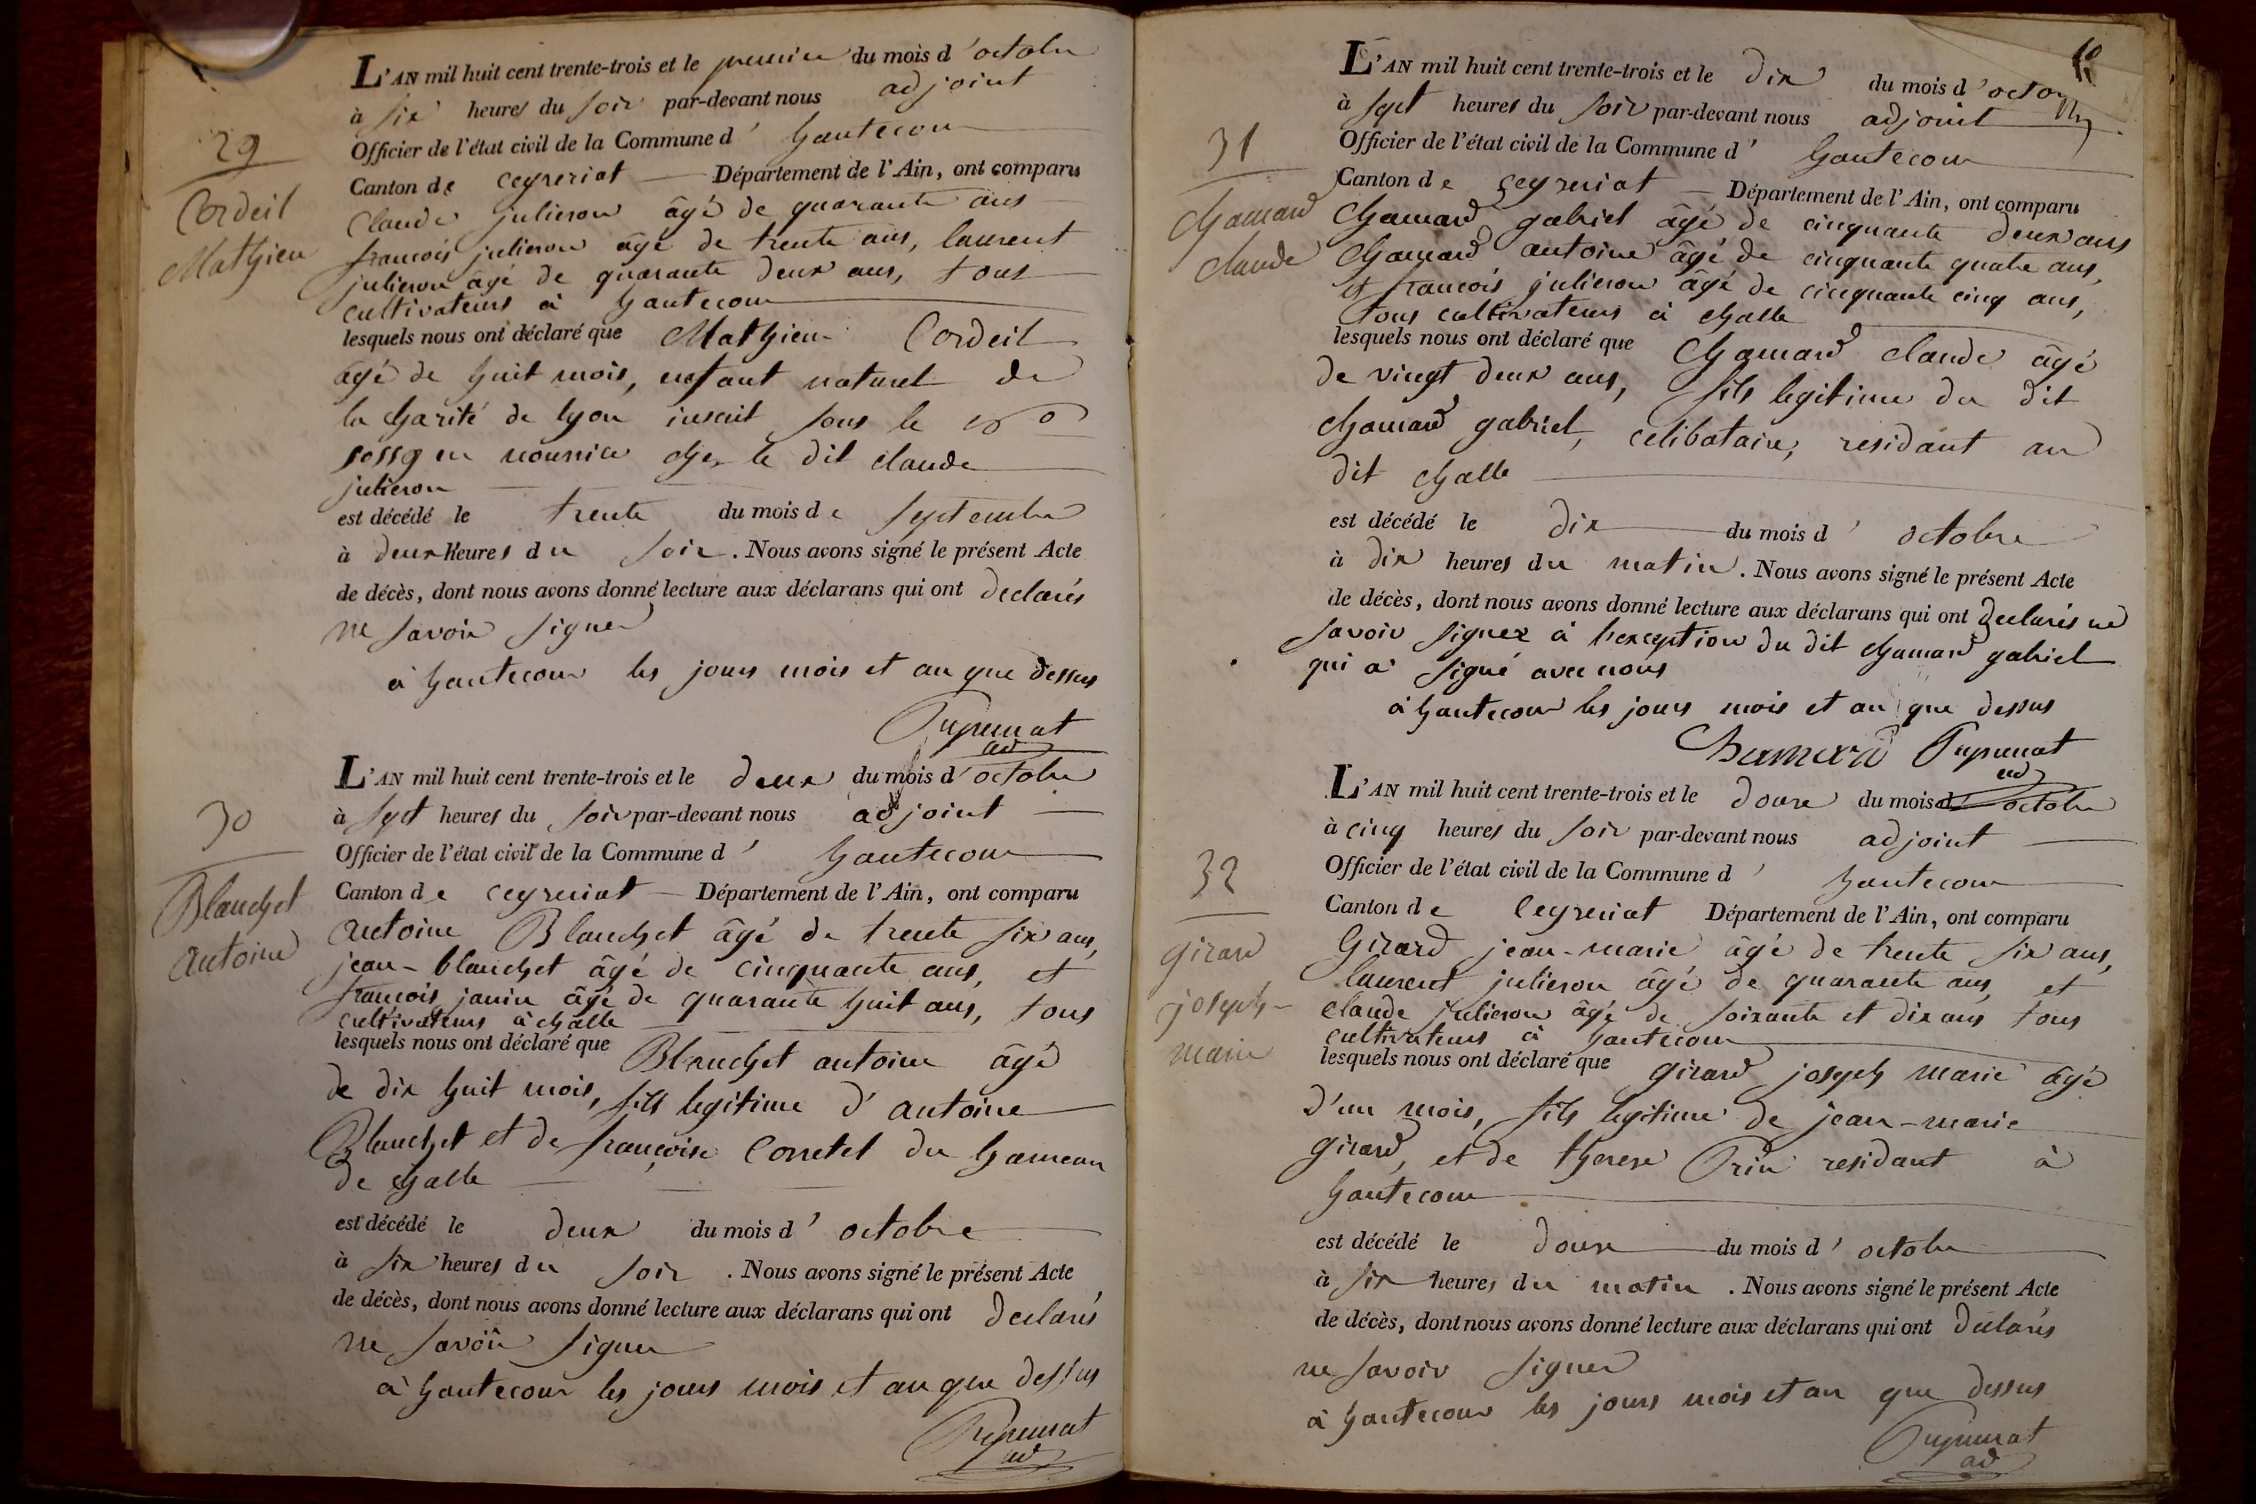 L'AN mil huit cent trente-trois et le premier du mois d'octobre
à six heures du soir par-devant nous adjoint
Officier de l'état civil de la Commune d'hautecour
29
Canton de ceyzeriat Département de l'Ain, ont comparu
Cordeil
Mathieu
Claude julieron âgé de quarante ans
françois julieron âgé de trente ans, laurent
julieron âgé de quarante deux ans, tous
cultivateurs à hautecour
lesquels nous ont déclaré que Mathieu Cordeil
âgé de huit mois, enfant naturel de
la charité de lyon inscrit sous le no
en nourrice chez le dit claude
julieron
est décédé le trente du mois de septembre
à deux heures du soir. Nous avons signé le présent Acte
de décès, dont nous avons donné lecture aux déclarans qui ont declarés
ne savoir signer
à hautecour les jours mois et an que dessus
ad
L'AN mil huit cent trente-trois et le deux du mois d'octobre
à sept heures du soir par-devant nous adjoint
30
Officier de l'état civil de la Commune d'hautecour
Canton de ceyzeriat Département de l'Ain, ont comparu
Blanchet
antoine
antoine Blanchet âgé de trente six ans,
jean-blanchet âgé de cinquante ans, et
françois janin âgé de quarante huit ans, tous
cultivateurs à challe
lesquels nous ont déclaré que Blanchet antoine âgé
de dix huit mois, fils legitime d'antoine
Blanchet et de françoise Corretel du hameau
de challe
est décédé le deux du mois d'octobre
à six heures du soir. Nous avons signé le présent Acte
de décès, dont nous avons donné lecture aux déclarans qui ont declarés
ne savoir signer
à hautecour les jours mois et an que dessus
ad
L'AN mil huit cent trente-trois et le dix du mois d'octobre
à sept heures du soir par-devant nous adjoint
31
Officier de l'état civil de la Commune d'hautecour
Canton de ceyzeriat Département de l'Ain, ont comparu
chamard
claude
Chamard gabriel âgé de cinquante deux ans
Chamard antoine âgé de cinquante quatre ans,
et françois julieron âgé de cinquante cinq ans,
tous cultivateurs à challe
lesquels nous ont déclaré que Chamard claude âgé
de vingt deux ans, fils legitime du dit
chamard gabriel, celibataire, residant au
dit challe
est décédé le dix du mois d'octobre
à dix heures du matin. Nous avons signé le présent Acte
de décès, dont nous avons donné lecture aux déclarans qui ont declarés ne
savoir signer à l'exception du dit chamard gabriel
qui a signé avec nous
à hautecour les jours mois et an que dessus
Chamard
ad
L'AN mil huit cent trente-trois et le douze du mois d'octobre
à cinq heures du soir par-devant nous adjoint
32
Officier de l'état civil de la Commune d'hautecour
Canton de Ceyzeriat Département de l'Ain, ont comparu
girard
joseph-
marie
Girard jean-marie âgé de trente six ans,
laurent julieron âgé de quarante ans, et
claude julieron âgé de soixante et dix ans tous
cultivateurs à hautecour
lesquels nous ont déclaré que girard joseph marie âgé
d'un mois, fils legitime de jean-marie
girard, et de therese Prin residant à
hautecour
est décédé le douze du mois d'octobre
à six heures du matin. Nous avons signé le présent Acte
de décès, dont nous avons donné lecture aux déclarans qui ont declarés
ne savoir signer
à hautecour les jours mois et an que dessus
ad